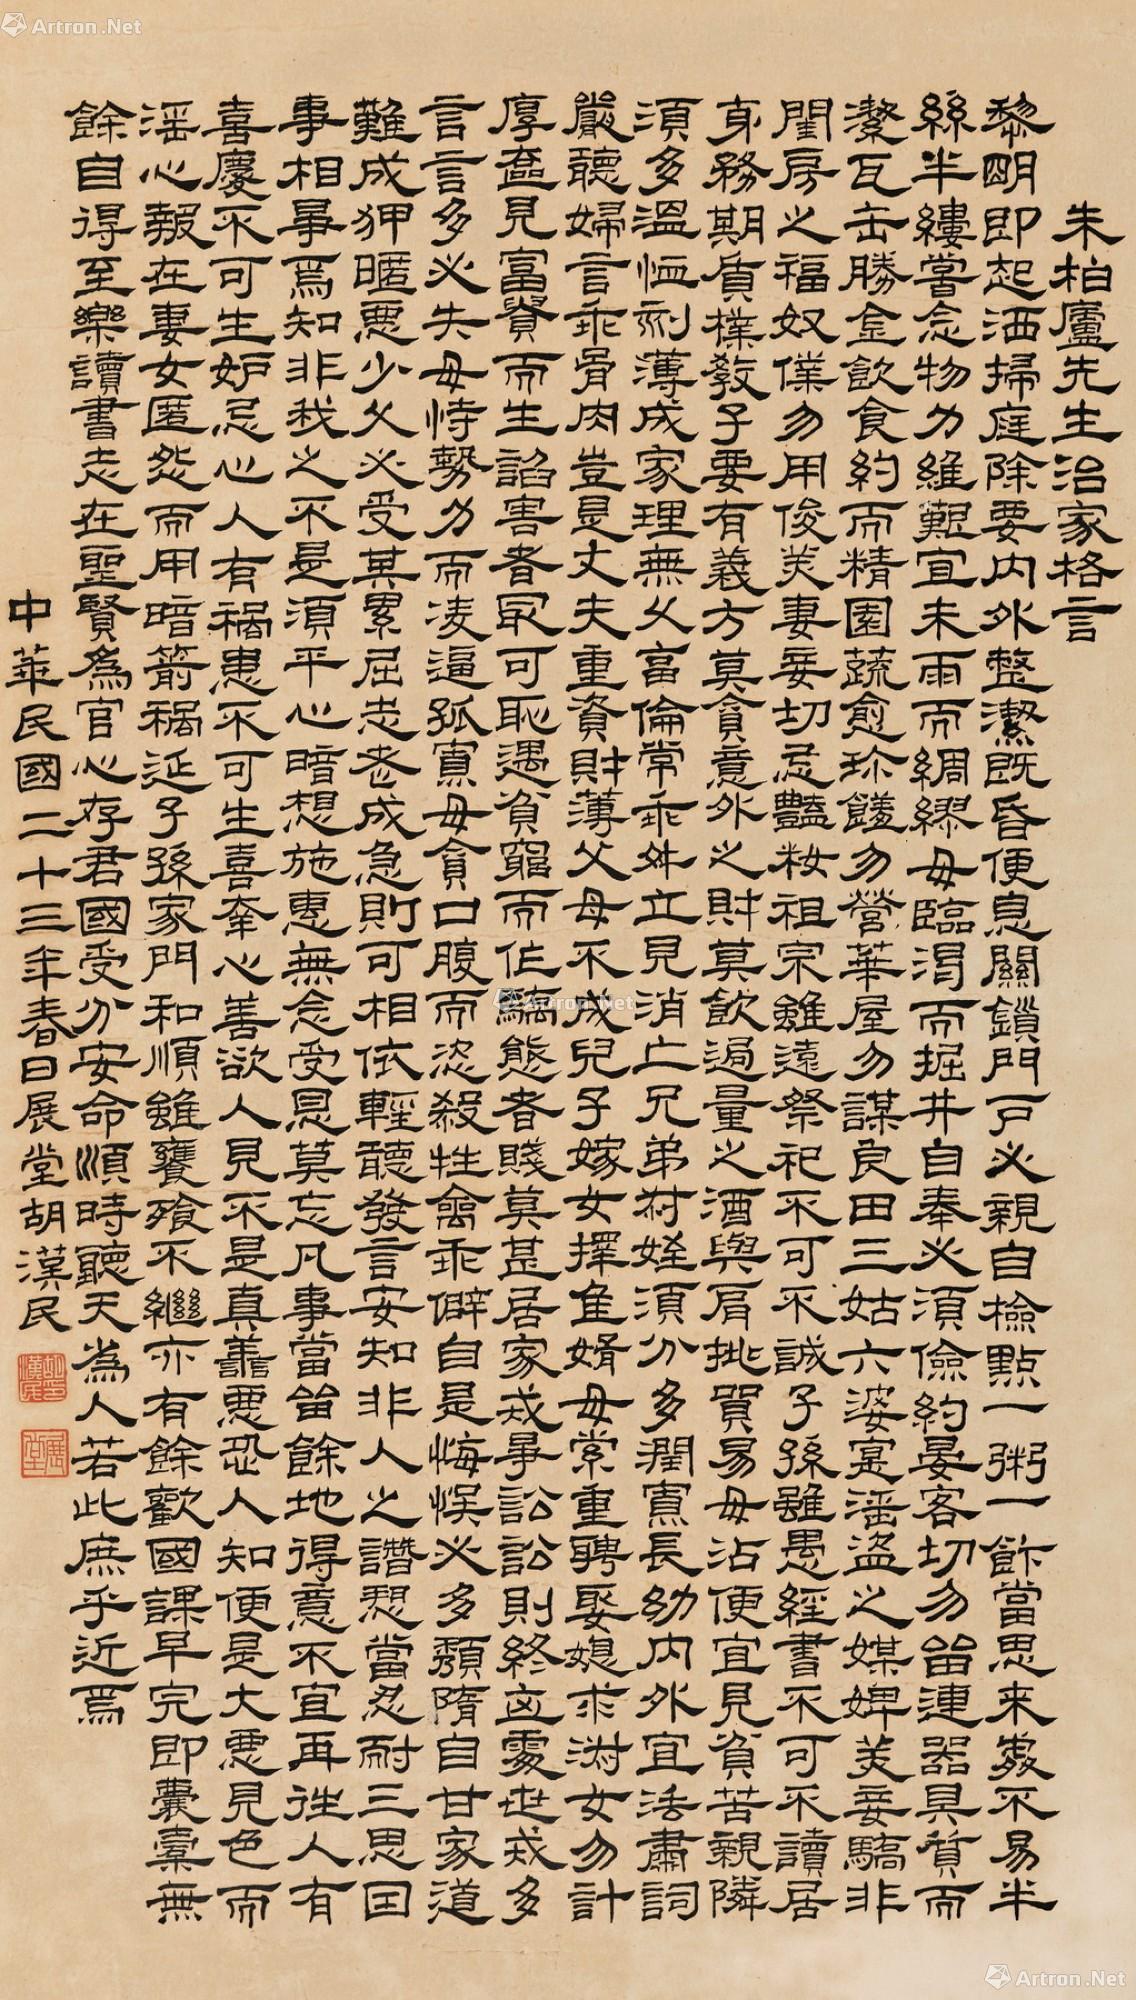 朱柏廬先生治家格言
黎明即起洒掃庭除要內外整潔既昏便息關鎖門戶必親自檢點一粥一飯當思来處不易半
絲半縷當念物力維艱宜未雨而綢繆毋臨渴而掘井自奉必須儉約宴客切勿留連器具質而
潔瓦缶勝金飲食約而精園蔬愈珍饈勿營華屋勿謀良田三姑六婆寔淫盜之媒婢美妾驕非
閨房之福奴僕勿用俊美妻妾切忌豔妝祖宗雖遠祭祀不可不誠子孫雖愚經書不可不讀居
身務期質樸教子要有義方莫貪意外之財莫飲過量之酒與肩挑貿易毋沾便宜見貧苦親隣
須多溫恤刻薄成家理無久富倫常乖舛立見消亡兄弟叔姪須分多潤寡長幼內外宜法肅詞
嚴聽婦言乖骨肉豈是丈夫重資財薄父母不成兒子嫁女擇佳婿毋索重聘娶媳求淑女勿計
厚奩見富貴而生諂害者最可恥遇貧窮而作驕態者賤莫甚居家戒爭訟訟則終凶處世戒多
言言多必失毋恃勢力而凌逼孤寡毋貪口腹而恣殺牲禽乖僻自是悔悮必多頹隋自甘家道
難成狎暱惡少久必受其累屈志老成急則可相依輕聽發言安知非人之譖愬當忍耐三思因
事相爭焉知非我之不是須平心暗想施惠無念受恩莫忘凡事當留餘地得意不宜再往人有
喜慶不可生妒忌心人有禍患不可生喜幸心善欲人見不是真善惡恐人知便是大惡見色而
淫心報在妻女匿怨而用暗箭禍延子孫家門和順雖饔飧不繼亦有餘歡國課早完即囊橐無
餘自得至樂讀書志在聖賢為官心存君國受分安命順時聽天為人若此庶乎近焉
中華民國二十三年春日展堂胡漢民
胡漢民印
展堂
Artron.Net
Artron.Net
Artron.Net